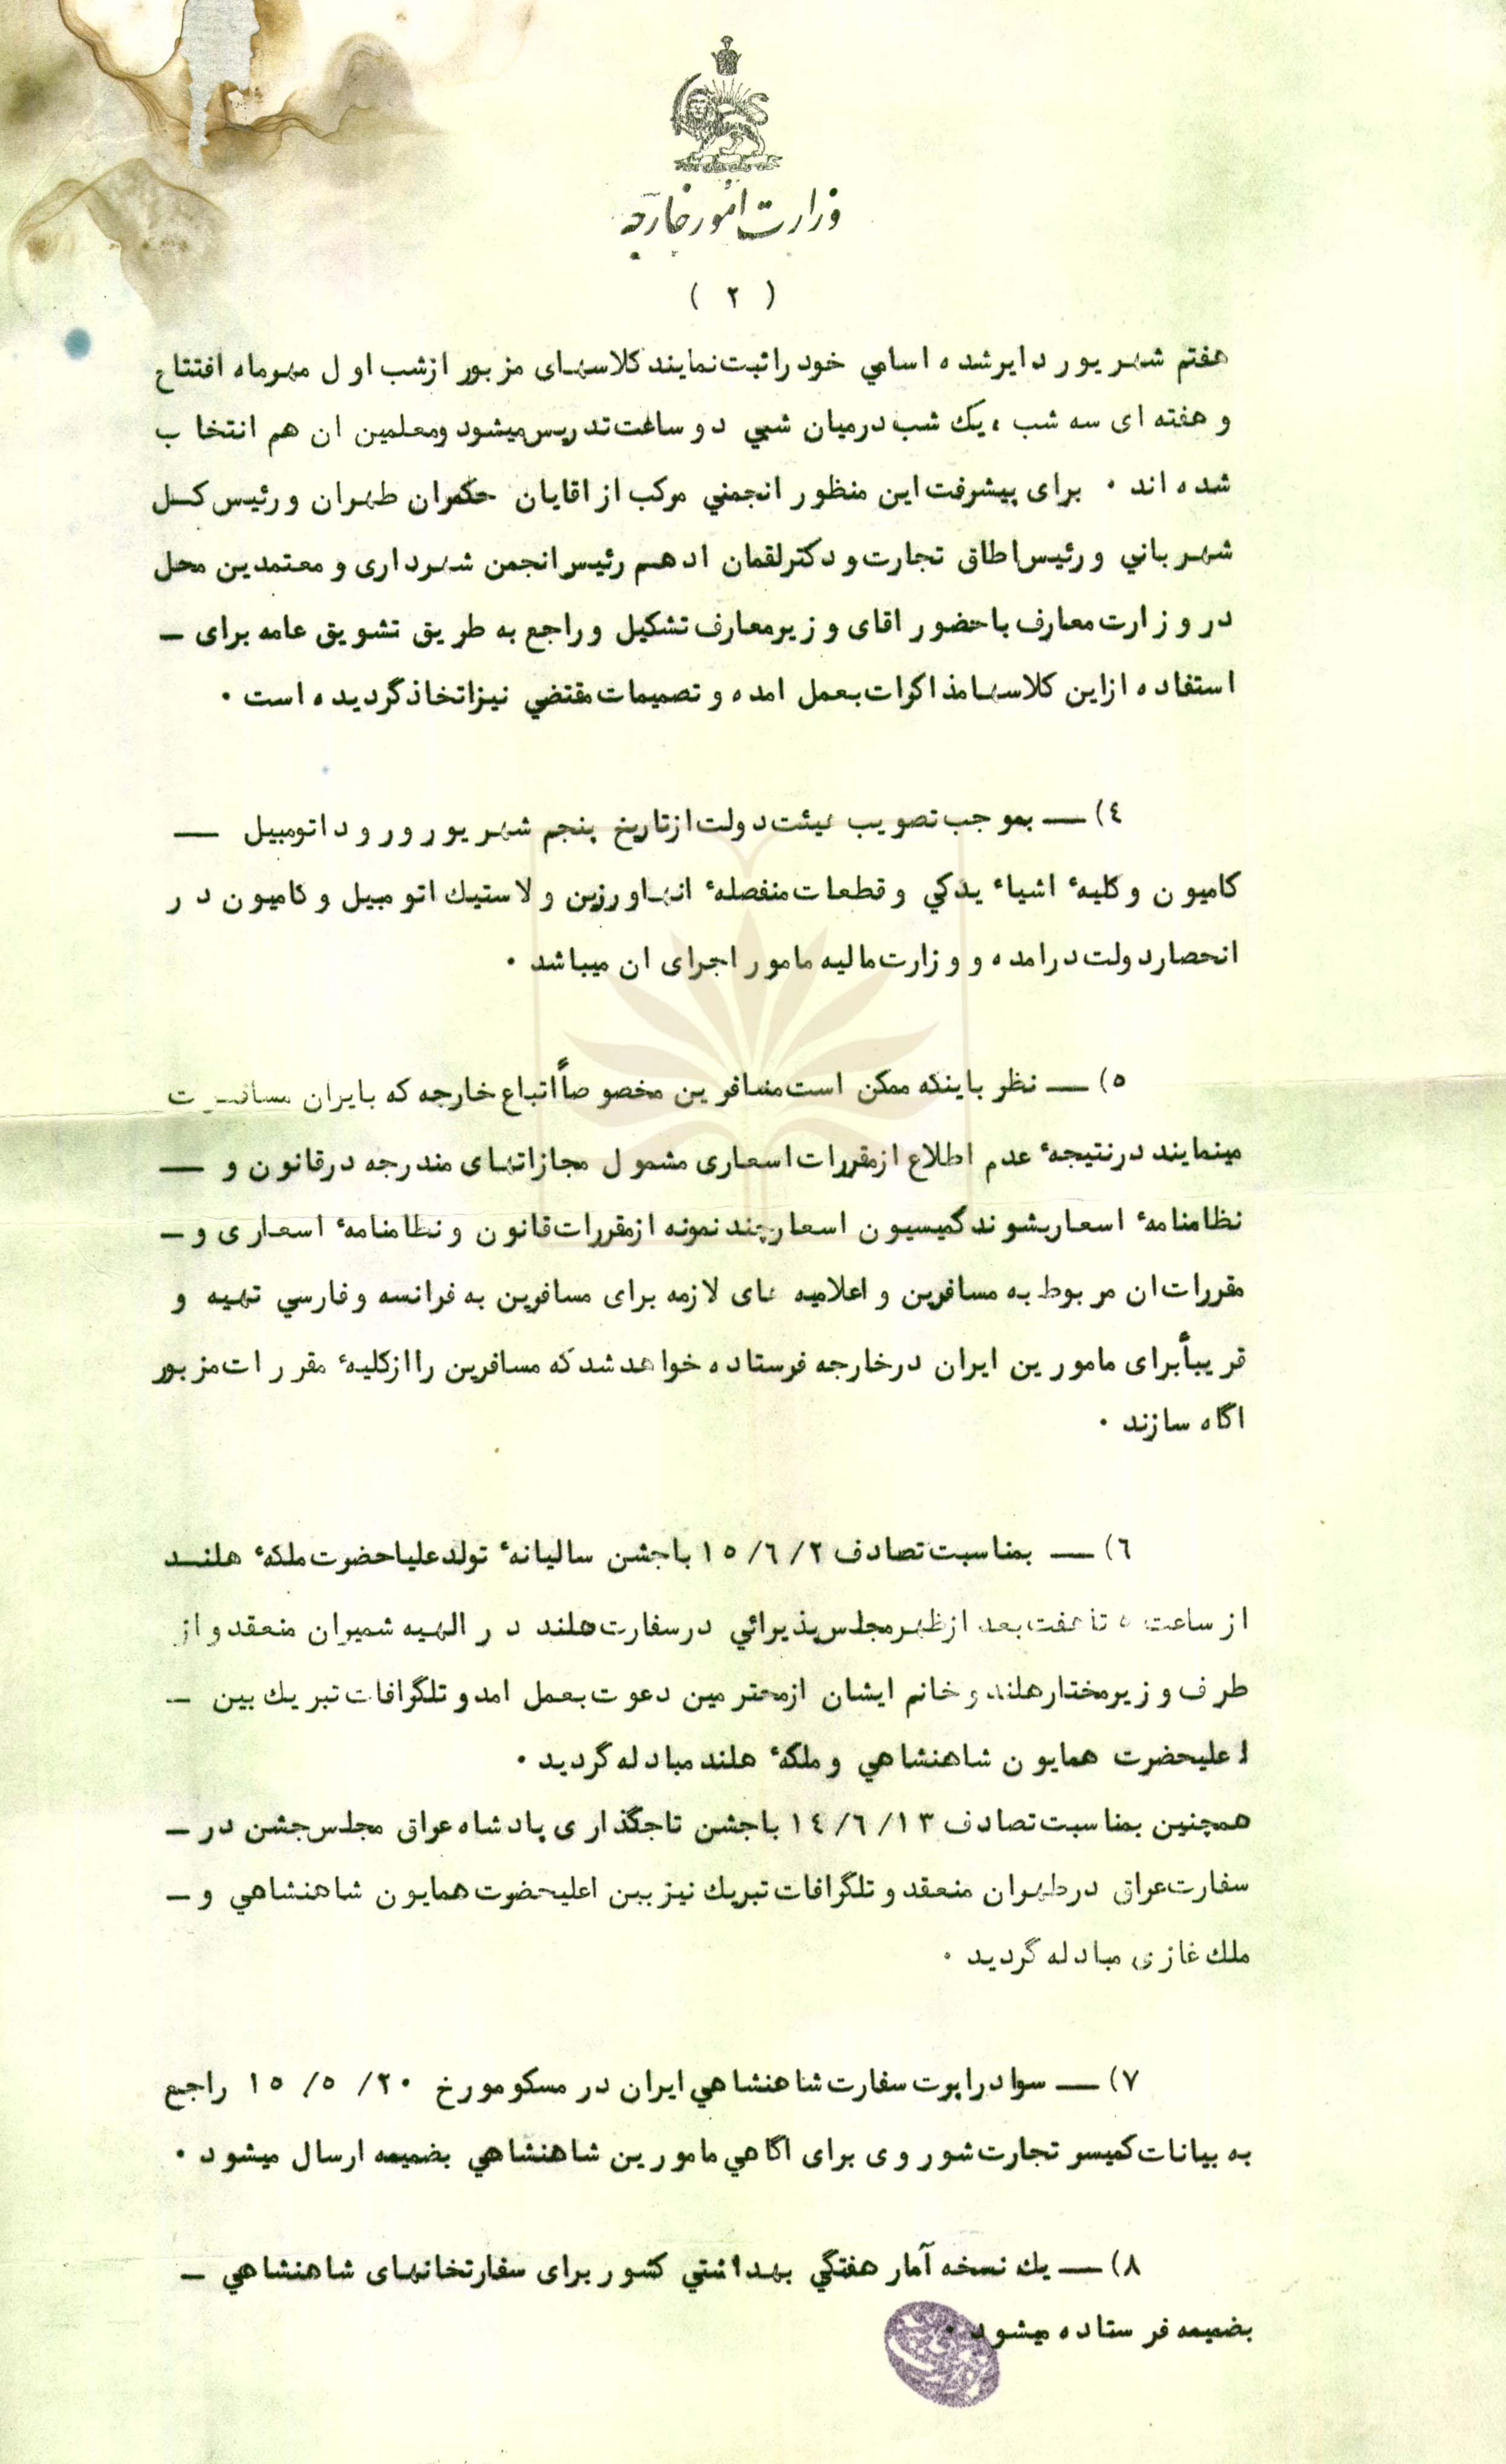 وزارت امور خارجه
( ۲ )
هفتم شهریور دایرشده اسامي خود راثبت نمایند کلاسهای مزبور ازشب اول مهرماه افتتاح
و هفته ای سه شب ، یك شب درمیان شبي دو ساعت تدریس میشود ومعلمین ان هم انتخاب
شده اند ۰ برای پیشرفت این منظور انجمني مرکب از اقایان حکمران طهران و رئیس کل
شهرباني و رئیس اطاق تجارت و دکترلقمان ادهم رئیس انجمن شهرداری و معتمدین محل
در وزارت معارف باحضور اقای وزیرمعارف تشکیل و راجع به طریق تشویق عامه برای —
استفاده ازاین کلاسها مذاکرات بعمل امده و تصمیمات مقتضي نیزاتخاذ گردیده است ۰
٤) — بموجب تصویب هیئت دولت ازتاریخ پنجم شهریور ورود اتومبیل —
کامیون و کلیهٔ اشیاء یدکي و قطعات منفصلهٔ انها و رزین و لاستیك اتومبیل و کامیون در
انحصاردولت درامده و وزارت مالیه مامور اجرای ان میباشد ۰
٥) — نظر باینکه ممکن است مسافرین مخصوصاً اتباع خارجه که بایران مسافرت
مینمایند درنتیجهٔ عدم اطلاع ازمقررات اسعاری مشمول مجازاتهای مندرجه درقانون و —
نظامنامهٔ اسعاربشوند کمیسیون اسعارچند نمونه ازمقررات قانون و نظامنامهٔ اسعاری و —
مقررات ان مربوط به مسافرین و اعلامیه های لازمه برای مسافرین به فرانسه و فارسي تهیه و
قریباً برای مامورین ایران درخارجه فرستاده خواهد شد که مسافرین را ازکلیهٔ مقررات مزبور
اگاه سازند ۰
٦) — بمناسبت تصادف ۲/ ٦/ ۱٥ باجشن سالیانهٔ تولد علیاحضرت ملکهٔ هلند
از ساعت ٥ تا هفت بعد ازظهر مجلس پذیرائي درسفارت هلند در الهیه شمیران منعقد و از
طرف وزیرمختارهلند و خانم ایشان ازمحترمین دعوت بعمل امد و تلگرافات تبریك بین —
اعلیحضرت همایون شاهنشاهي و ملکهٔ هلند مبادله گردید ۰
همچنین بمناسبت تصادف ۱۳/ ٦/ ۱٤ باجشن تاجگذاری پادشاه عراق مجلس جشن در —
سفارت عراق درطهران منعقد و تلگرافات تبریك نیز بین اعلیحضرت همایون شاهنشاهي و —
ملك غازی مبادله گردید ۰
۷) — سواد راپرت سفارت شاهنشاهي ایران در مسکو مورخ ۲۰/ ٥/ ۱٥ راجع
به بیانات کمیسر تجارت شوروی برای اگاهي مامورین شاهنشاهي بضمیمه ارسال میشود ۰
۸) — یك نسخه آمار هفتگي بهداشتي کشور برای سفارتخانهای شاهنشاهي —
بضمیمه فرستاده میشود ۰